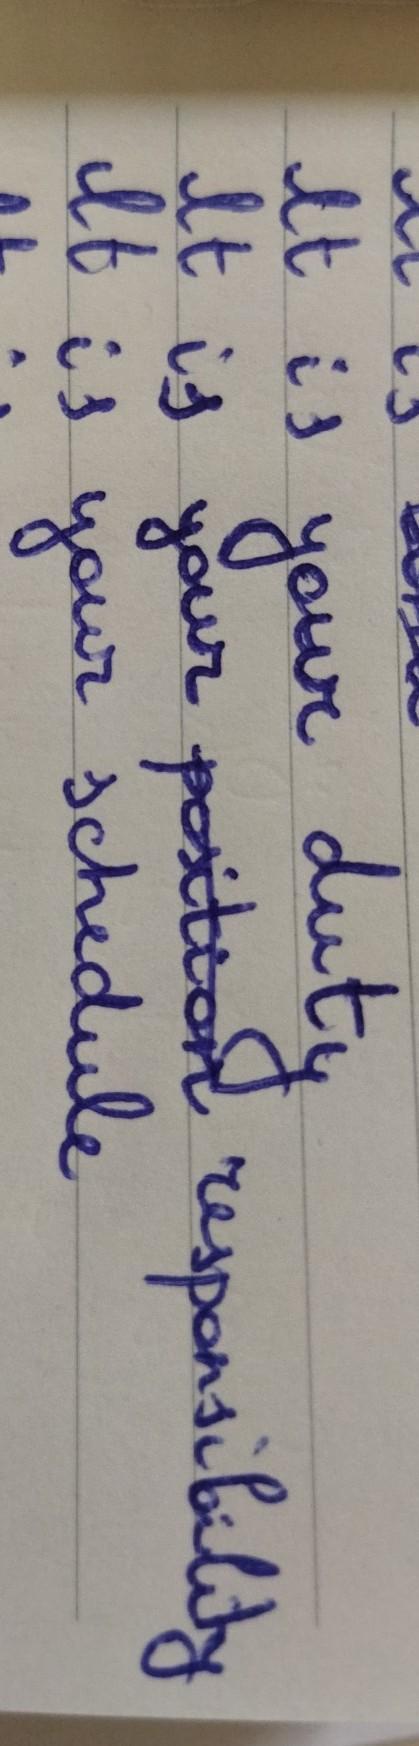 It is your duty
It is your position responsibility
It is your schedule